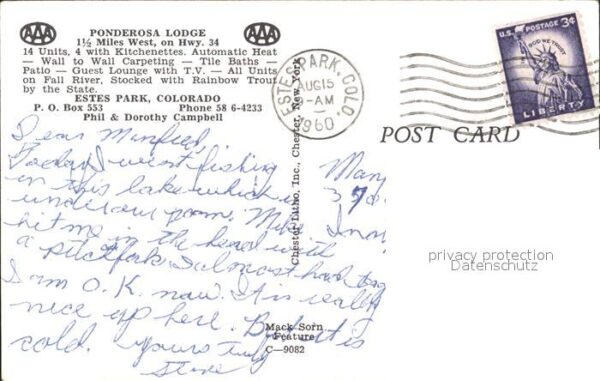 AAA
AAA
PONDEROSA LODGE
1½ Miles West, on Hwy. 34
14 Units, 4 with Kitchenettes. Automatic Heat
— Wall to Wall Carpeting — Tile Baths —
Patio — Guest Lounge with T.V. — All Units
on Fall River, Stocked with Rainbow Trout
by the State.
ESTES PARK, COLORADO
P. O. Box 553 Phone 58 6-4233
Phil & Dorothy Campbell
ESTES PARK, COLO.
AUG 15
-AM
1960
U.S. POSTAGE 3¢
IN GOD WE TRUST
LIBERTY
POST CARD
Chester Litho, Inc., Chester, New York
Dear Manfred,
Today I went fishing
in this lake which is
under our room. Mike
hit me in the head with
a pitchfork I almost had to go
I am O.K. now. It is really
nice up here. But it is
cold. yours truly
Steve
Man
370
Mack Sorn
Feature
C—9082
privacy protection
Datenschutz